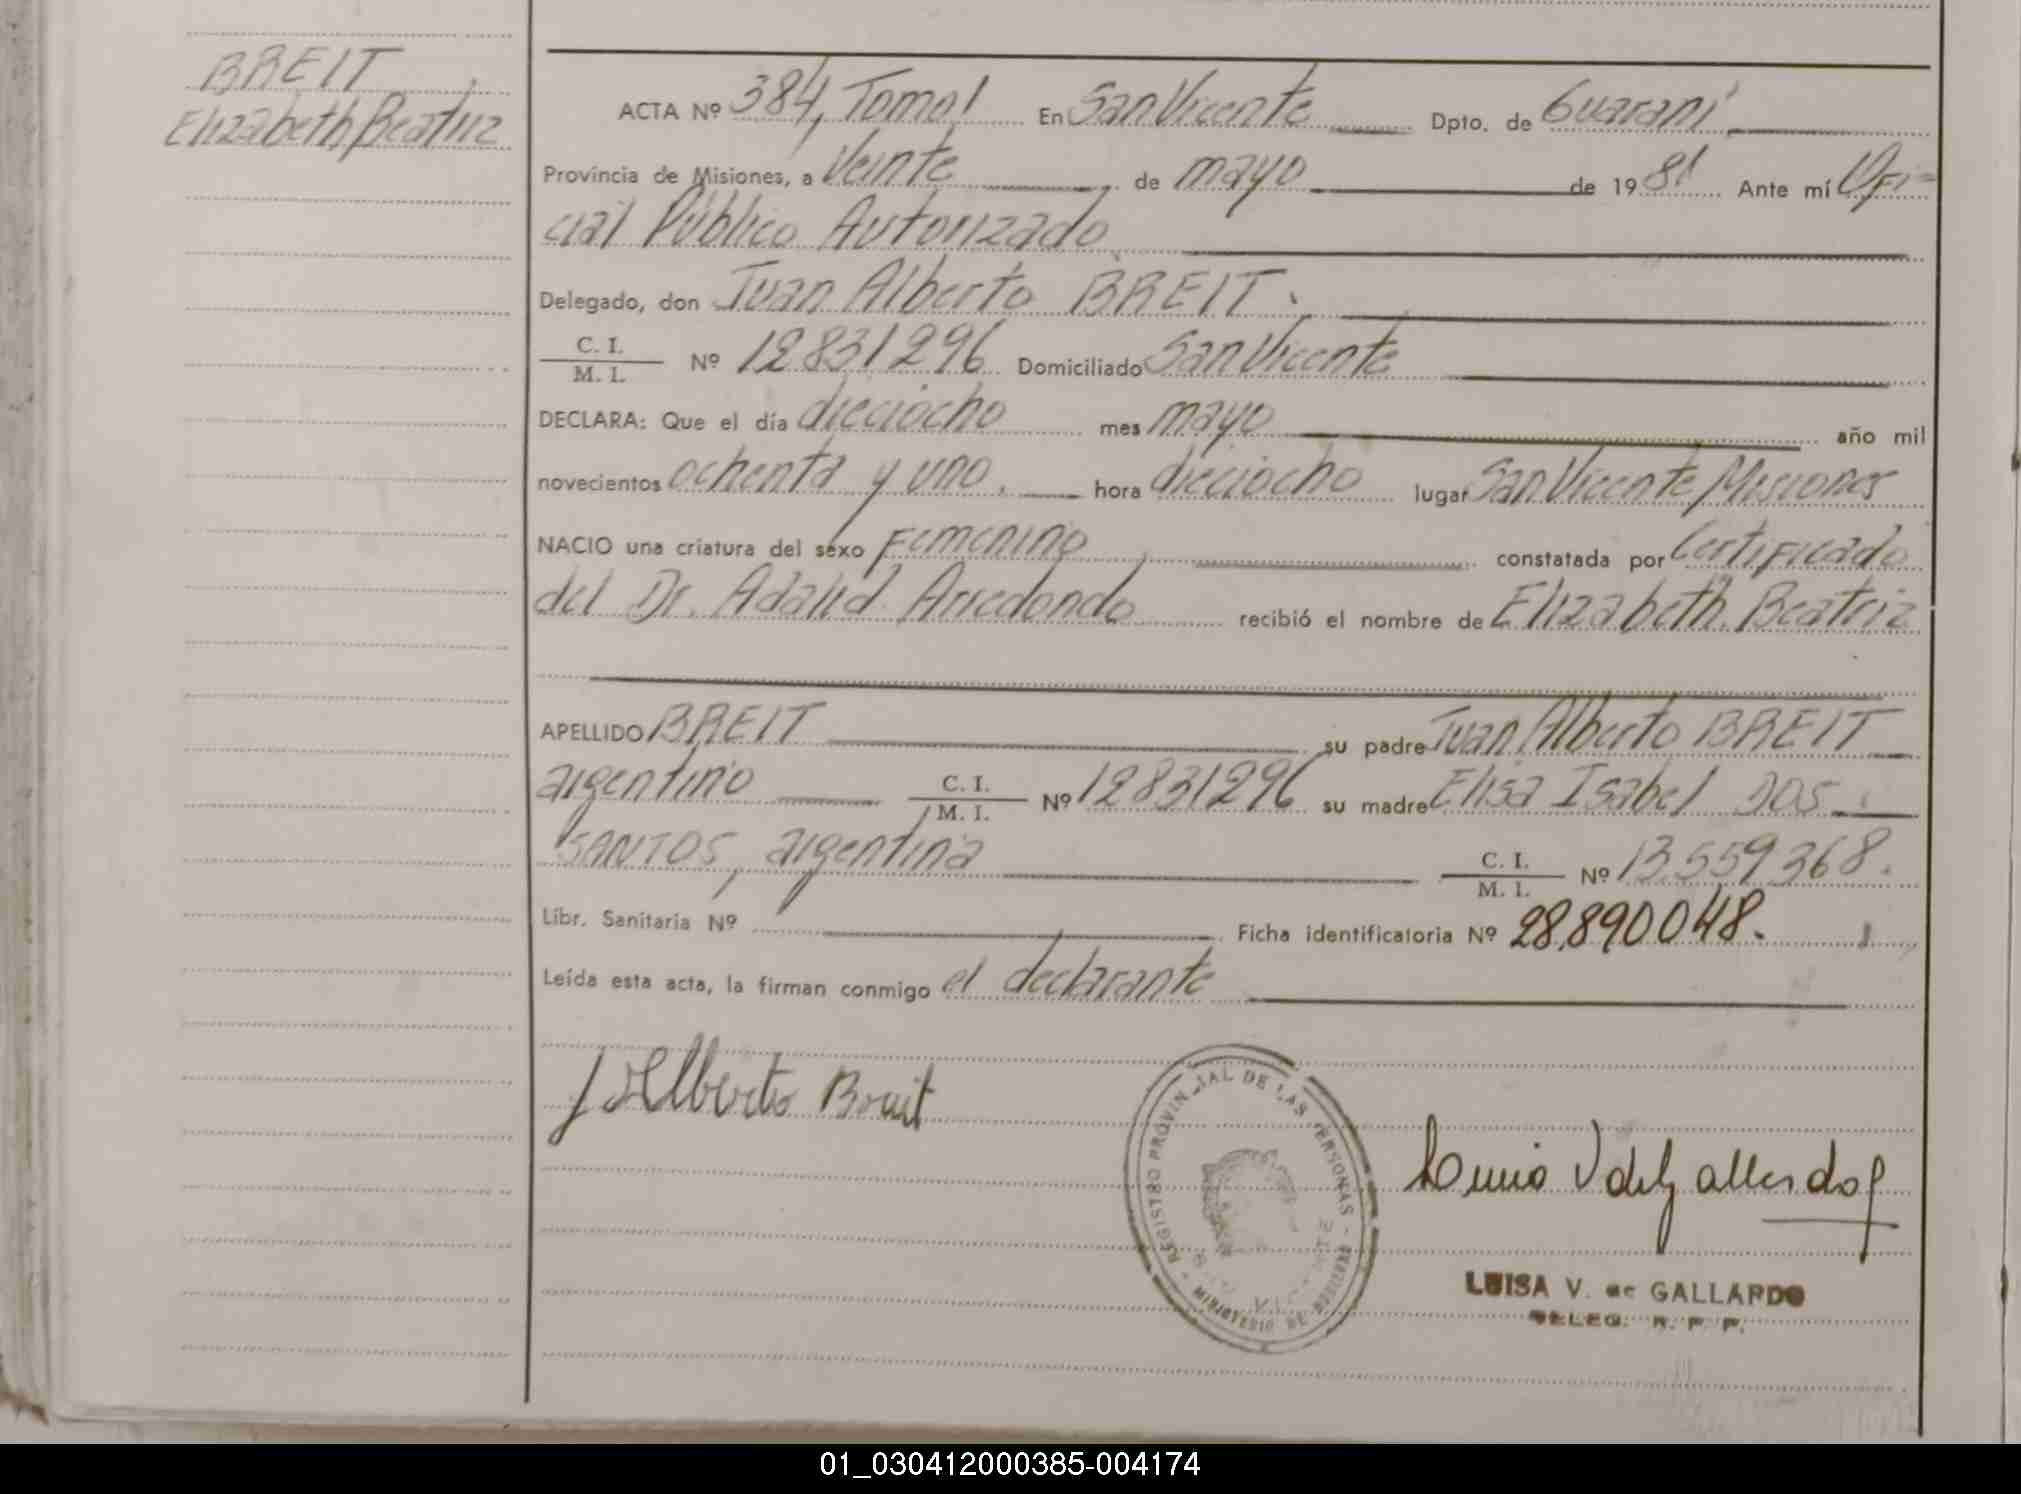 BREIT
Elizabeth Beatriz
ACTA Nº 384, Tomo I En San Vicente Dpto. de Guaraní
Provincia de Misiones, a Veinte de mayo de 1981 Ante mí Ofi-
cial Público Autorizado
Delegado, don Juan Alberto BREIT.
C. I.
M. I. Nº 12831296 Domiciliado San Vicente
DECLARA: Que el día dieciocho mes mayo año mil
novecientos ochenta y uno. hora dieciocho lugar San Vicente Misiones
NACIO una criatura del sexo Femenino constatada por Certificado
del Dr. Adalid Arredondo recibió el nombre de Elizabeth Beatriz
APELLIDO BREIT su padre Juan Alberto BREIT
argentino C. I.
M. I. Nº 12831296 su madre Elisa Isabel DOS
SANTOS, argentina C. I.
M. I. Nº 13.559368.
Libr. Sanitaria Nº Ficha identificatoria Nº 28.890048.
Leída esta acta, la firman conmigo el declarante
J Alberto Breit
REGISTRO PROVINCIAL DE LAS PERSONAS - MINISTERIO DE
LUISA V. de GALLARDO
DELEG. R. P. P.
01_030412000385-004174